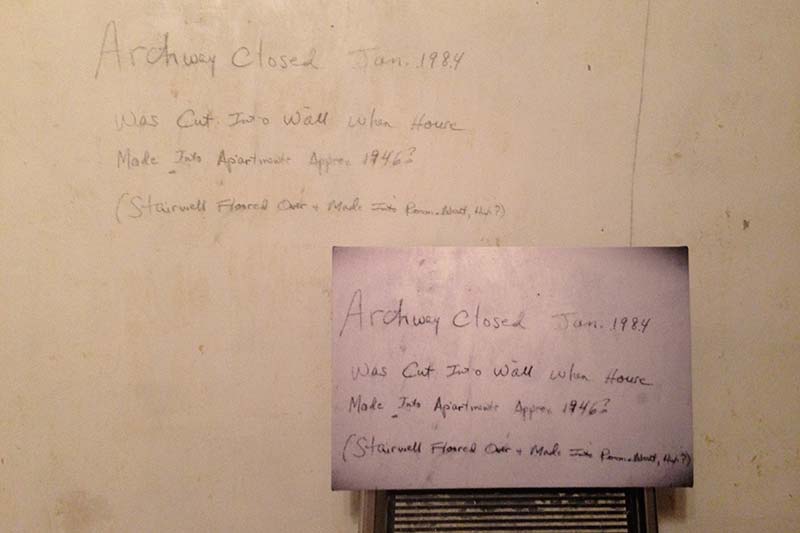 Archway Closed Jan. 1984
Was Cut Into Wall When House
Made Into Apartments Approx 1946?
(Stairwell Floored Over + Made Into Room - Neat, Huh?)
Archway Closed Jan. 1984
Was Cut Into Wall When House
Made Into Apartments Approx 1946?
(Stairwell Floored Over + Made Into Room - Neat, Huh?)